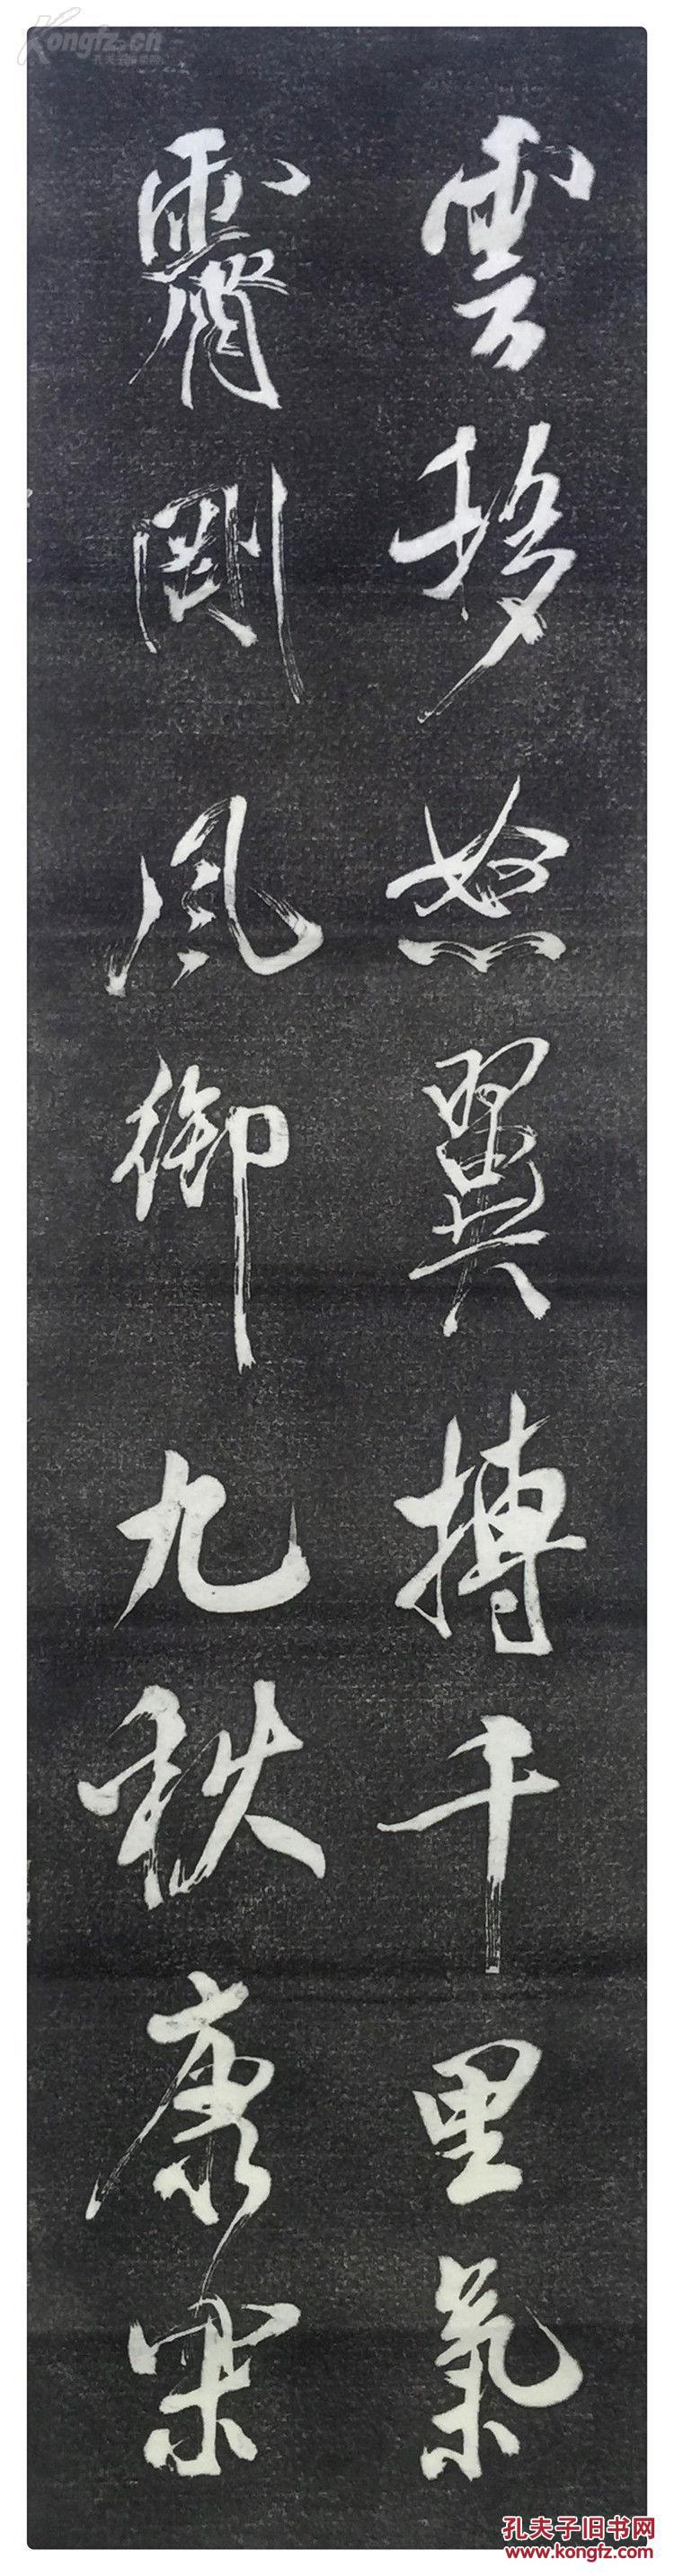 雲移怒翼搏千里氣
霽剛風御九秋康樂
Kongfz.cn
孔夫子旧书网
www.kongfz.com